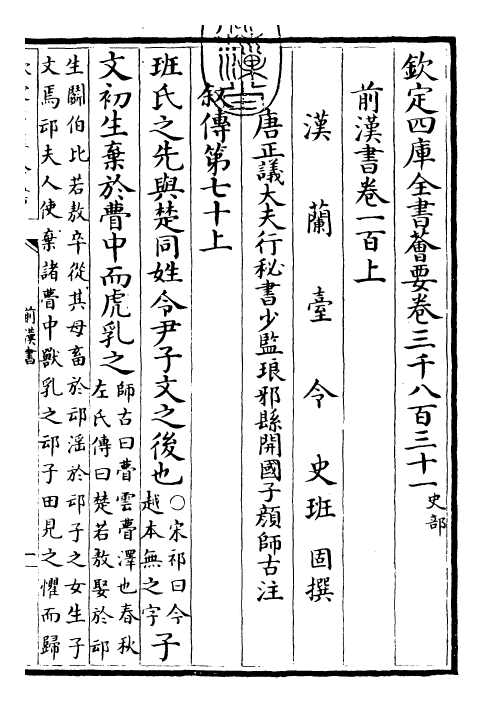 欽定四庫全書薈要卷三千八百三十一史部
前漢書卷一百上
漢蘭臺令史班固撰
唐正議大夫行秘書少監琅邪縣開國子顏師古注
叙傳第七十上
班氏之先與楚同姓令尹子文之後也○宋祁曰今越本無之字子
文初生棄於瞢中而虎乳之師古曰瞢雲瞢澤也春秋左氏傳曰楚若敖娶於䢵
生鬭伯比若敖卒從其母畜於䢵淫於䢵子之女生子
文焉䢵夫人使棄諸瞢中獸乳之䢵子田見之懼而歸
前漢書
一